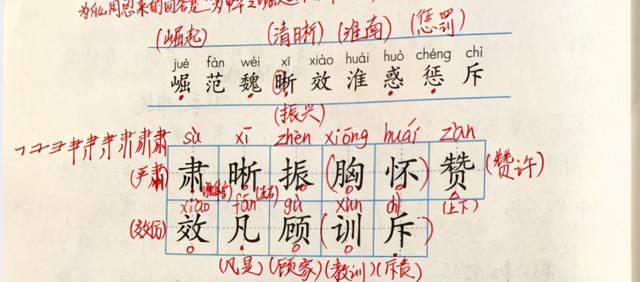 为什么用恩来的回答是"为中华之崛起
(崛起) (清晰) (淮南) (惩罚)
jué fàn wèi xī xiào huái huò chéng chì
崛 范 魏 晰 效 淮 惑 惩 斥
(振兴)
sù xī zhèn xiōng huái zàn
(严肃) 肃 晰 振 (胸 怀) 赞 (赞许)
xiào fán gù xùn chì (上下)
(效仿) 效 凡 顾 (训 斥)
(凡是) (顾家) (教训) (斥责)